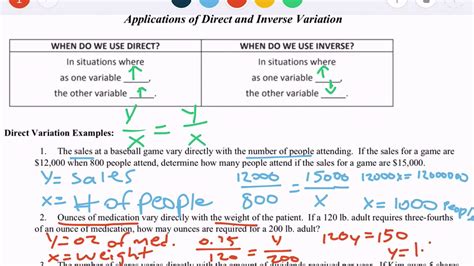 Applications of Direct and Inverse Variation
WHEN DO WE USE DIRECT?
In situations where
as one variable ↑,
the other variable ↑.
WHEN DO WE USE INVERSE?
In situations where
as one variable ↑,
the other variable ↓.
Direct Variation Examples: y/x = y/x
1. The sales at a baseball game vary directly with the number of people attending. If the sales for a game are
$12,000 when 800 people attend, determine how many people attend if the sales for a game are $15,000.
y = sales
x = # of people
12000/800 = 15000/x
12000x = 12000000
x = 1000 people
2. Ounces of medication vary directly with the weight of the patient. If a 120 lb. adult requires three-fourths
of an ounce of medication, how many ounces are required for a 200 lb. adult?
y = oz of med.
x = weight
0.75/120 = y/200
120y = 150
y = 1.